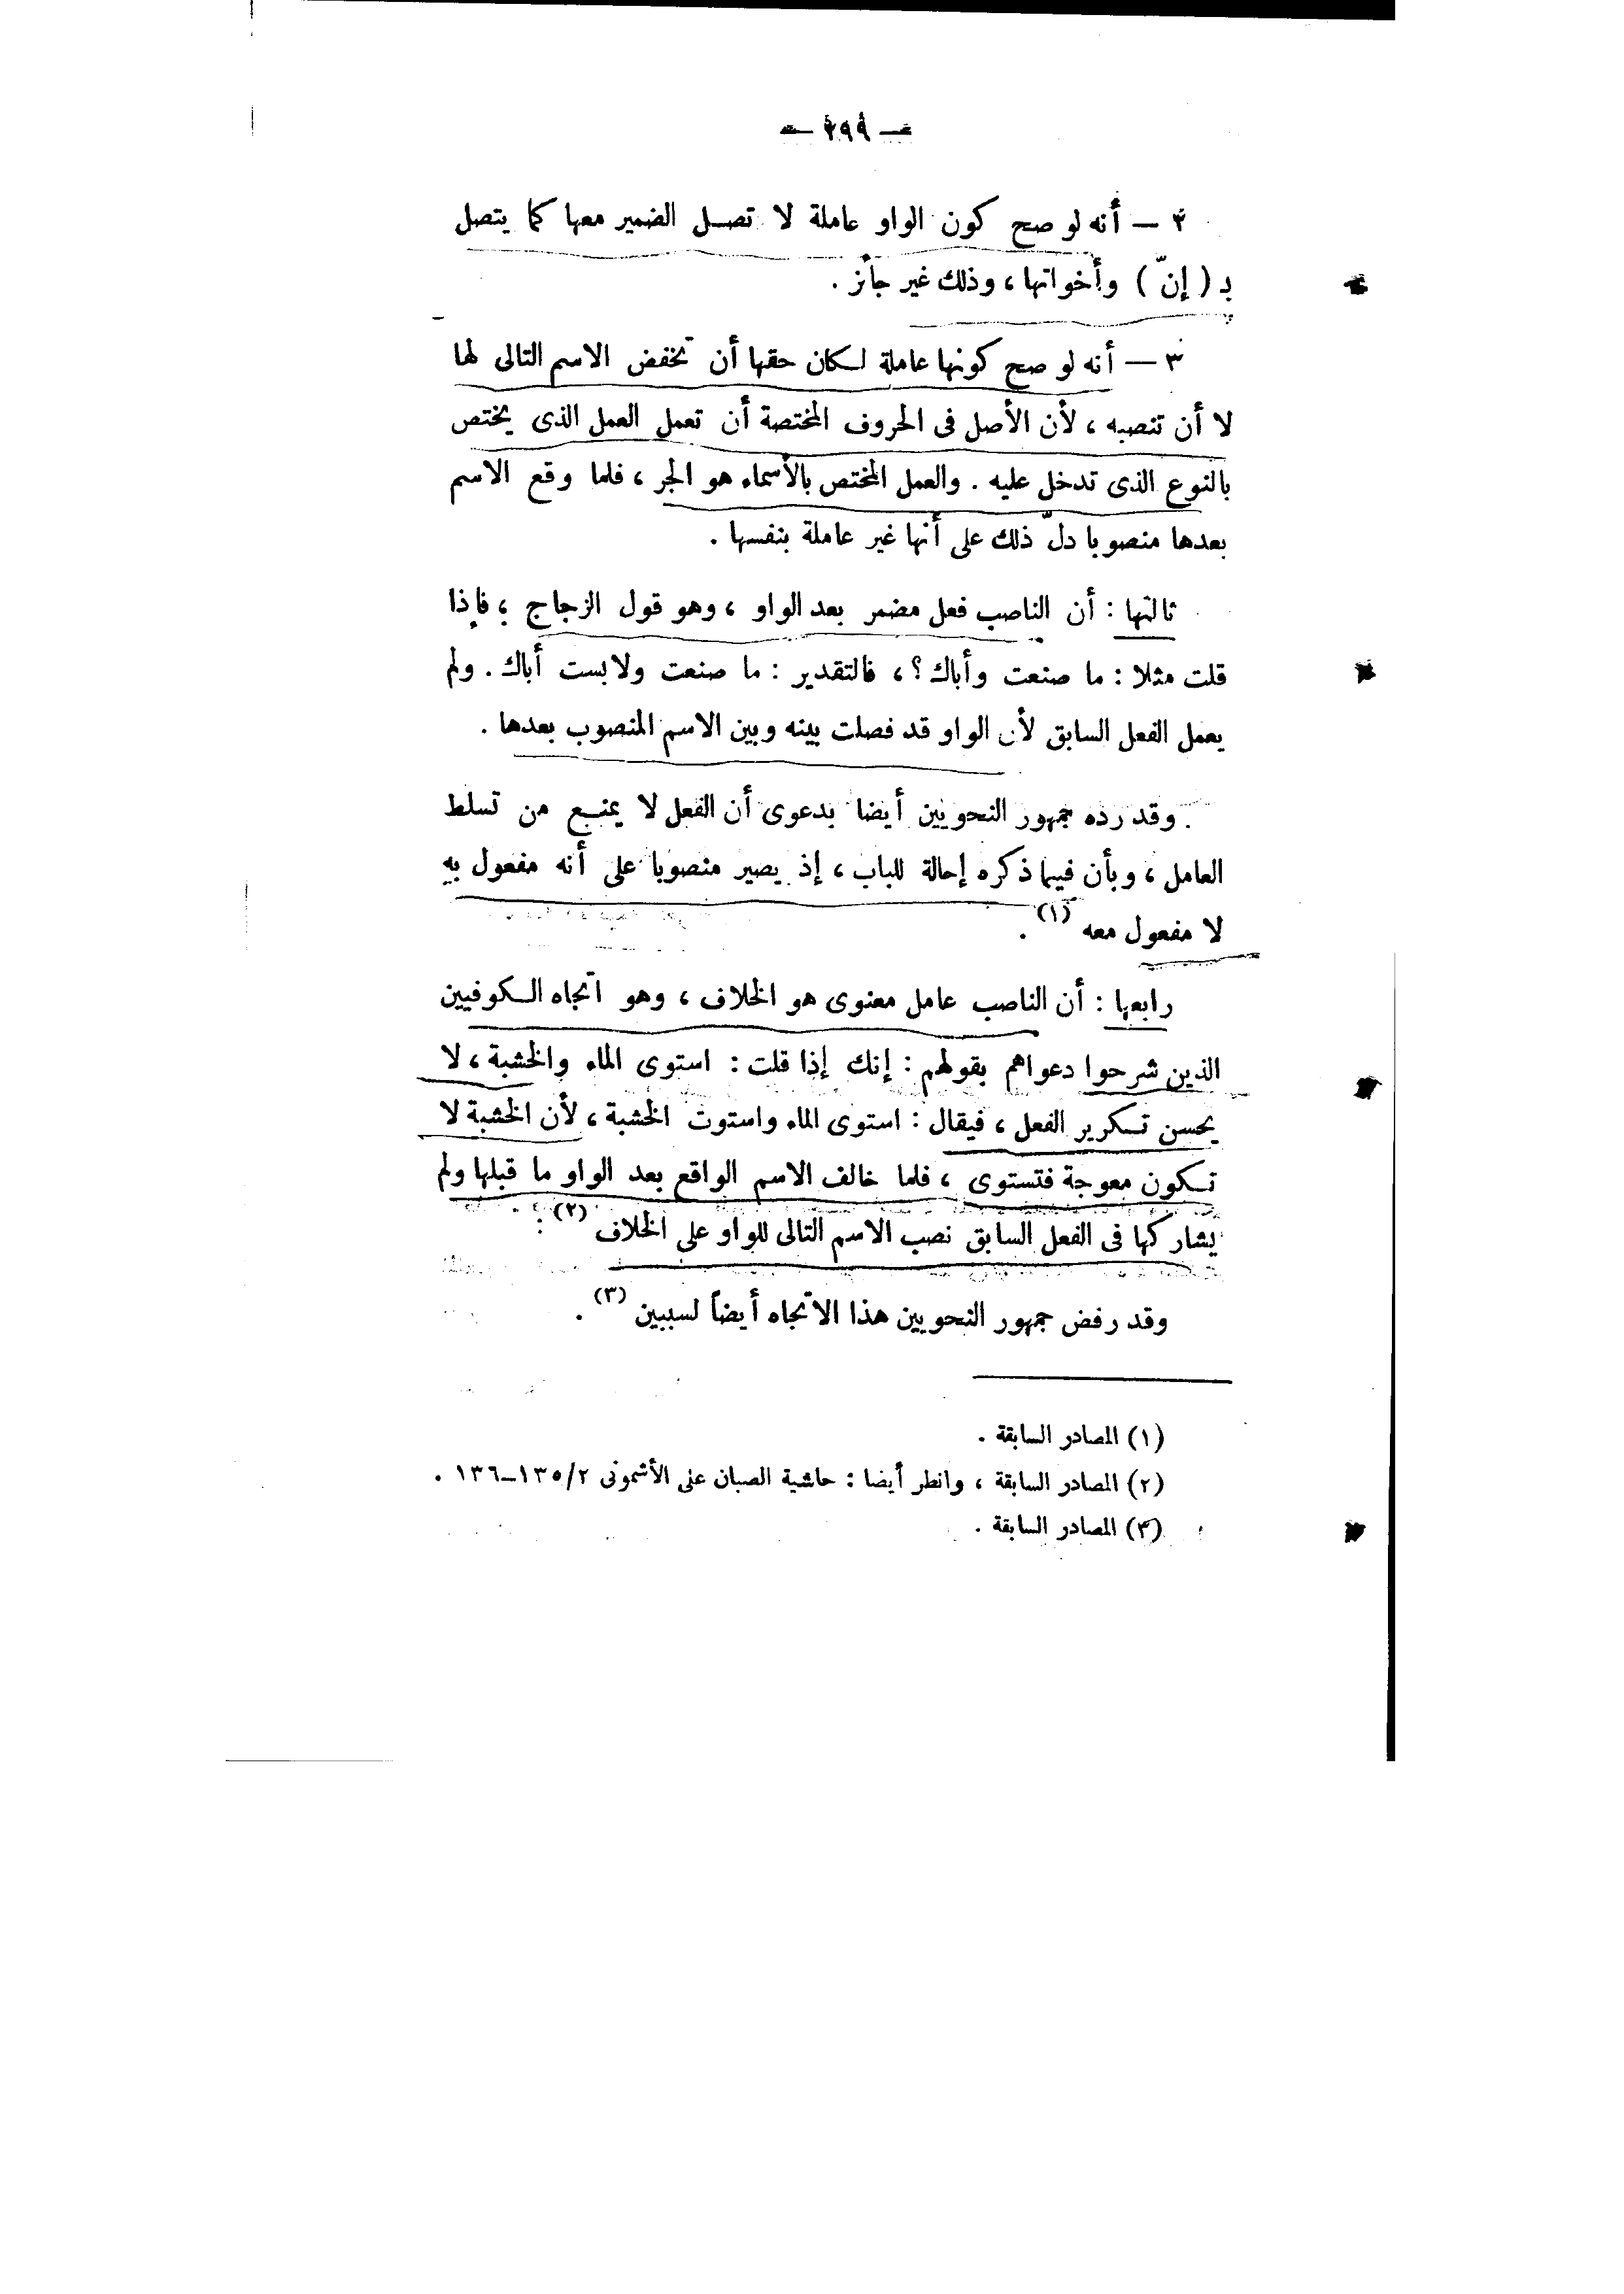 — ٢٩٩ —
٢ — أنه لو صح كون الواو عاملة لا تصل الضمير معها كما يتصل
بـ ( إنّ ) وأخواتها ، وذلك غير جائز .
٣ — أنه لو صح كونها عاملة لكان حقها أن تخفض الاسم التالى لها
لا أن تنصبه ، لأن الأصل فى الحروف المختصة أن تعمل العمل الذى يختص
بالنوع الذى تدخل عليه . والعمل المختص بالأسماء هو الجر ، فلما وقع الاسم
بعدها منصوبا دلّ ذلك على أنها غير عاملة بنفسها .
ثالثها : أن الناصب فعل مضمر بعد الواو ، وهو قول الزجاج ، فإذا
قلت مثلا : ما صنعت وأباك ؟ ، فالتقدير : ما صنعت ولابست أباك . ولم
يعمل الفعل السابق لأن الواو قد فصلت بينه وبين الاسم المنصوب بعدها .
وقد رده جمهور النحويين أيضا بدعوى أن الفعل لا يمنع من تسلط
العامل ، وبأن فيما ذكره إحالة للباب ، إذ يصير منصوبا على أنه مفعول به
لا مفعول معه (١) .
رابعها : أن الناصب عامل معنوى هو الخلاف ، وهو اتجاه الكوفيين
الذين شرحوا دعواهم بقولهم : إنك إذا قلت : استوى الماء والخشبة ، لا
يحسن تكرير الفعل ، فيقال : استوى الماء واستوت الخشبة ، لأن الخشبة لا
تكون معوجة فتستوى ، فلما خالف الاسم الواقع بعد الواو ما قبلها ولم
يشاركها فى الفعل السابق نصب الاسم التالى للواو على الخلاف (٢) .
وقد رفض جمهور النحويين هذا الاتجاه أيضاً لسببين (٣) .
(١) المصادر السابقة .
(٢) المصادر السابقة ، وانظر أيضا : حاشية الصبان على الأشمونى ٢/١٣٥-١٣٦ .
(٣) المصادر السابقة .